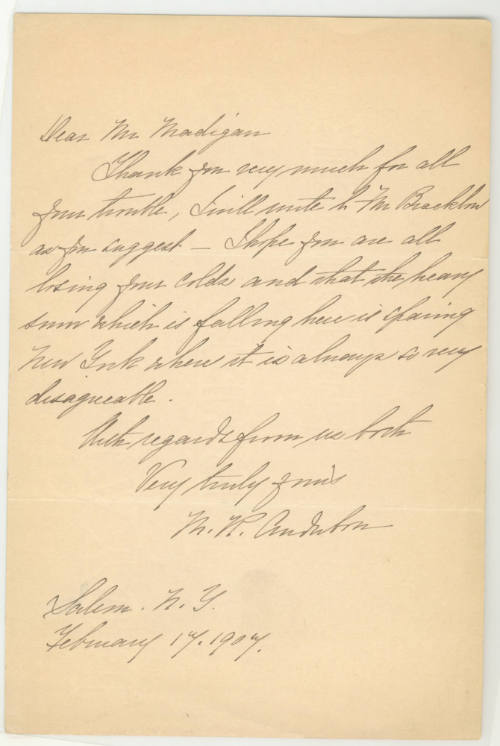 Dear Mr Madigan
Thank you very much for all
your trouble, I will write to Mr
as you suggest — I hope you are all
losing your colds and that the heavy
snow which is falling here is sparing
New York where it is always so very
disagreeable.
With regards from us both
Very truly yours
M. R. Audubon
Salem. N. Y.
February 17. 1907.